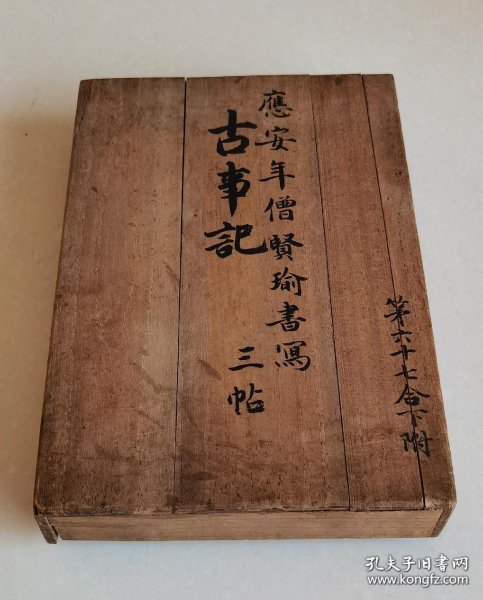 應安年僧賢瑜書寫
古事記
三帖
第六十七合下附
孔夫子旧书网
www.kongfz.com